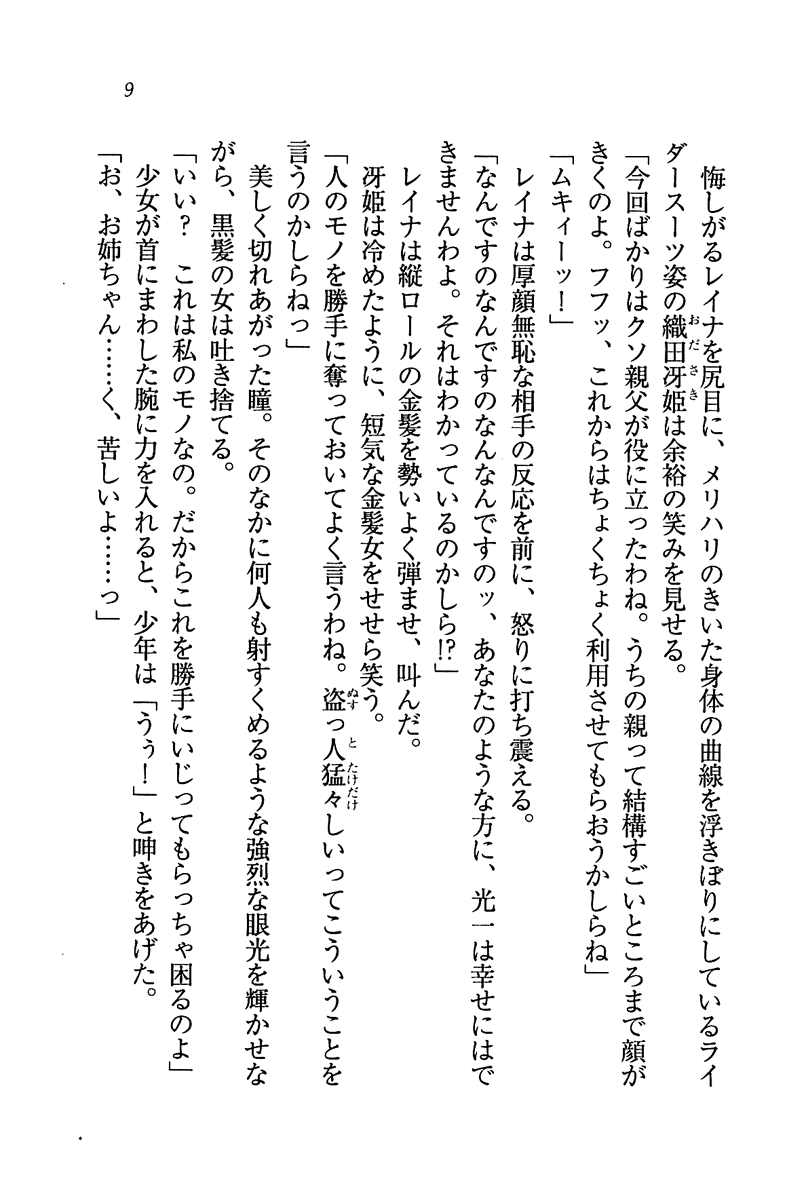 9
悔しがるレイナを尻目に、メリハリのきいた身体の曲線を浮きぼりにしているライ
ダースーツ姿の織田冴姫は余裕の笑みを見せる。
「今回ばかりはクソ親父が役に立ったわね。うちの親って結構すごいところまで顔が
きくのよ。フフッ、これからはちょくちょく利用させてもらおうかしらね」
「ムキィーッ！」
レイナは厚顔無恥な相手の反応を前に、怒りに打ち震える。
「なんですのなんですのなんなんですのッ、あなたのような方に、光一は幸せにはで
きませんわよ。それはわかっているのかしら!?」
レイナは縦ロールの金髪を勢いよく弾ませ、叫んだ。
冴姫は冷めたように、短気な金髪女をせせら笑う。
「人のモノを勝手に奪っておいてよく言うわね。盗っ人猛々しいってこういうことを
言うのかしらねっ」
美しく切れあがった瞳。そのなかに何人も射すくめるような強烈な眼光を輝かせな
がら、黒髪の女は吐き捨てる。
「いい？　これは私のモノなの。だからこれを勝手にいじってもらっちゃ困るのよ」
少女が首にまわした腕に力を入れると、少年は「うぅ！」と呻きをあげた。
「お、お姉ちゃん……く、苦しいよ……っ」